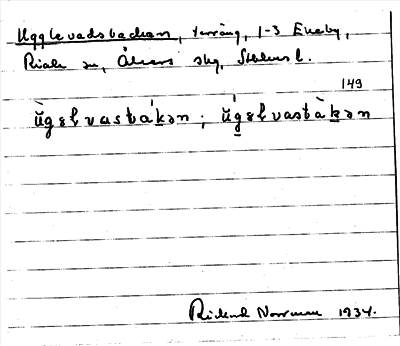 Ugglevadsbacken, terräng, 1-3 Eneby,
Riala sn, Åkers skg, Sthlms l.
149
ùgelvastbákən ; úgelvastbàkən
Rickard Norrman 1934.